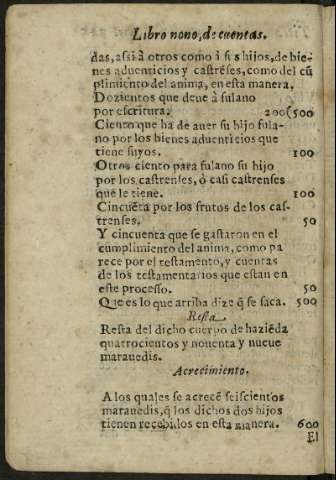 Libro nono, de cuentas.
das, assi à otros como à sus hijos, de bie-
nes aduenticios y castrẽses, como del cũ
plimiẽto del anima, en esta manera.
Dozientos que deue à fulano
por escritura. 200(500
Ciento que ha de auer su hijo fula-
no por los bienes aduenticios que
tiene suyos. 100
Otros ciento para fulano su hijo
por los castrenses, ò casi castrenses
que le tiene. 100
Cincuẽta por los frutos de los cas-
trenses. 50
Y cincuenta que se gastaron en el
cumplimiento del anima, como pa
rece por el testamento, y cuentas
de los testamentarios que estan en
este processo. 50
Que es lo que arriba dize q̃ se saca. 500
Resta.
Resta del dicho cuerpo de haziẽda
quatrocientos y nouenta y nueue
marauedis.
Acrecimiento.
A los quales se acrecẽ seiscientos
marauedis, q̃ los dichos dos hijos
tienen recebidos en esta manera. 600
El